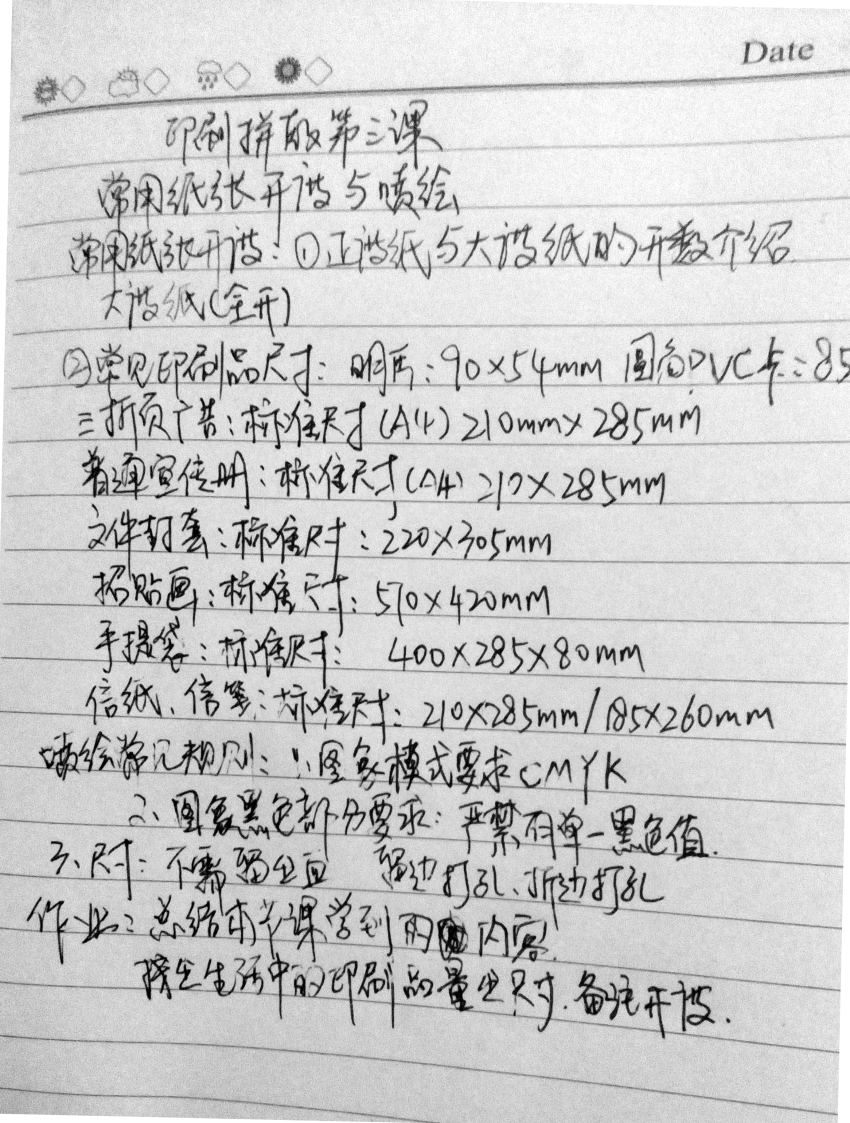 Date
印刷拼版第三课
常用纸张开度与喷绘
常用纸张开度：①正度纸与大度纸的开数介绍
大度纸(全开)
②常见印刷品尺寸：名片：90×54mm 圆角PVC卡：85
三折页广告：标准尺寸(A4)210mm×285mm
普通宣传册：标准尺寸(A4)210×285mm
文件封套：标准尺寸：220×305mm
招贴画：标准尺寸：570×420mm
手提袋：标准尺寸： 400×285×80mm
信纸、信笺：标准尺寸：210×285mm/185×260mm
喷绘常见规则：1、图象模式要求CMYK
2、图象黑色部分要求：严禁有单一黑色值.
3、尺寸：不需留出血 留边打孔、折边打孔
作业：总结本节课学到的内容.
找出生活中的印刷品量出尺寸.备注开度.